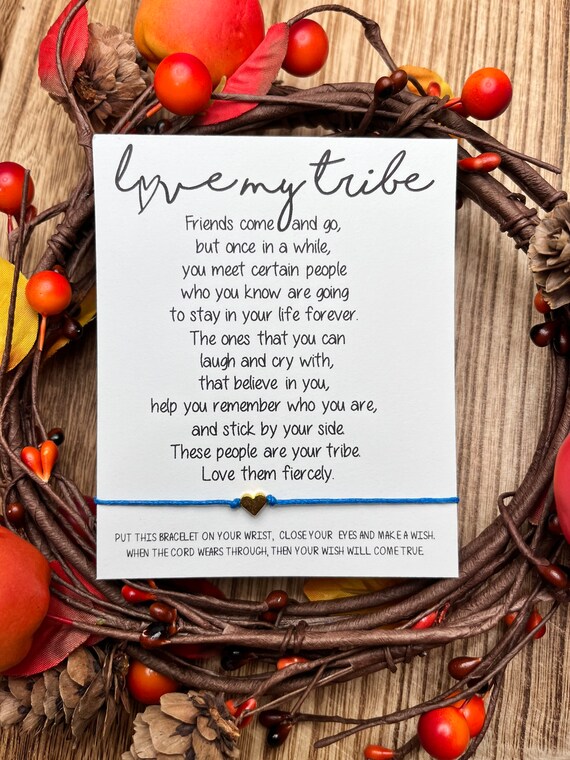 love my tribe
Friends come and go,
but once in a while,
you meet certain people
who you know are going
to stay in your life forever.
The ones that you can
laugh and cry with,
that believe in you,
help you remember who you are,
and stick by your side.
These people are your tribe.
Love them fiercely.
PUT THIS BRACELET ON YOUR WRIST, CLOSE YOUR EYES AND MAKE A WISH.
WHEN THE CORD WEARS THROUGH, THEN YOUR WISH WILL COME TRUE.